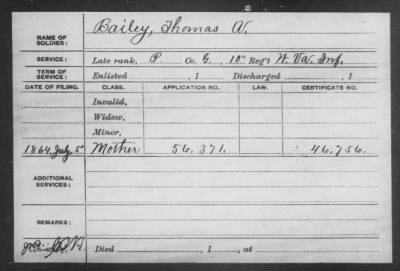 NAME OF SOLDIER: Bailey, Thomas A.
SERVICE: Late rank, P Co. G, 10" Reg't W. Va. Inf.
TERM OF SERVICE: Enlisted , 1 Discharged , 1
DATE OF FILING. CLASS. APPLICATION NO. LAW. CERTIFICATE NO.
Invalid,
Widow,
Minor,
1864, July, 5 Mother 56.371. 46.756.
ADDITIONAL SERVICES:
REMARKS:
Died , 1 , at